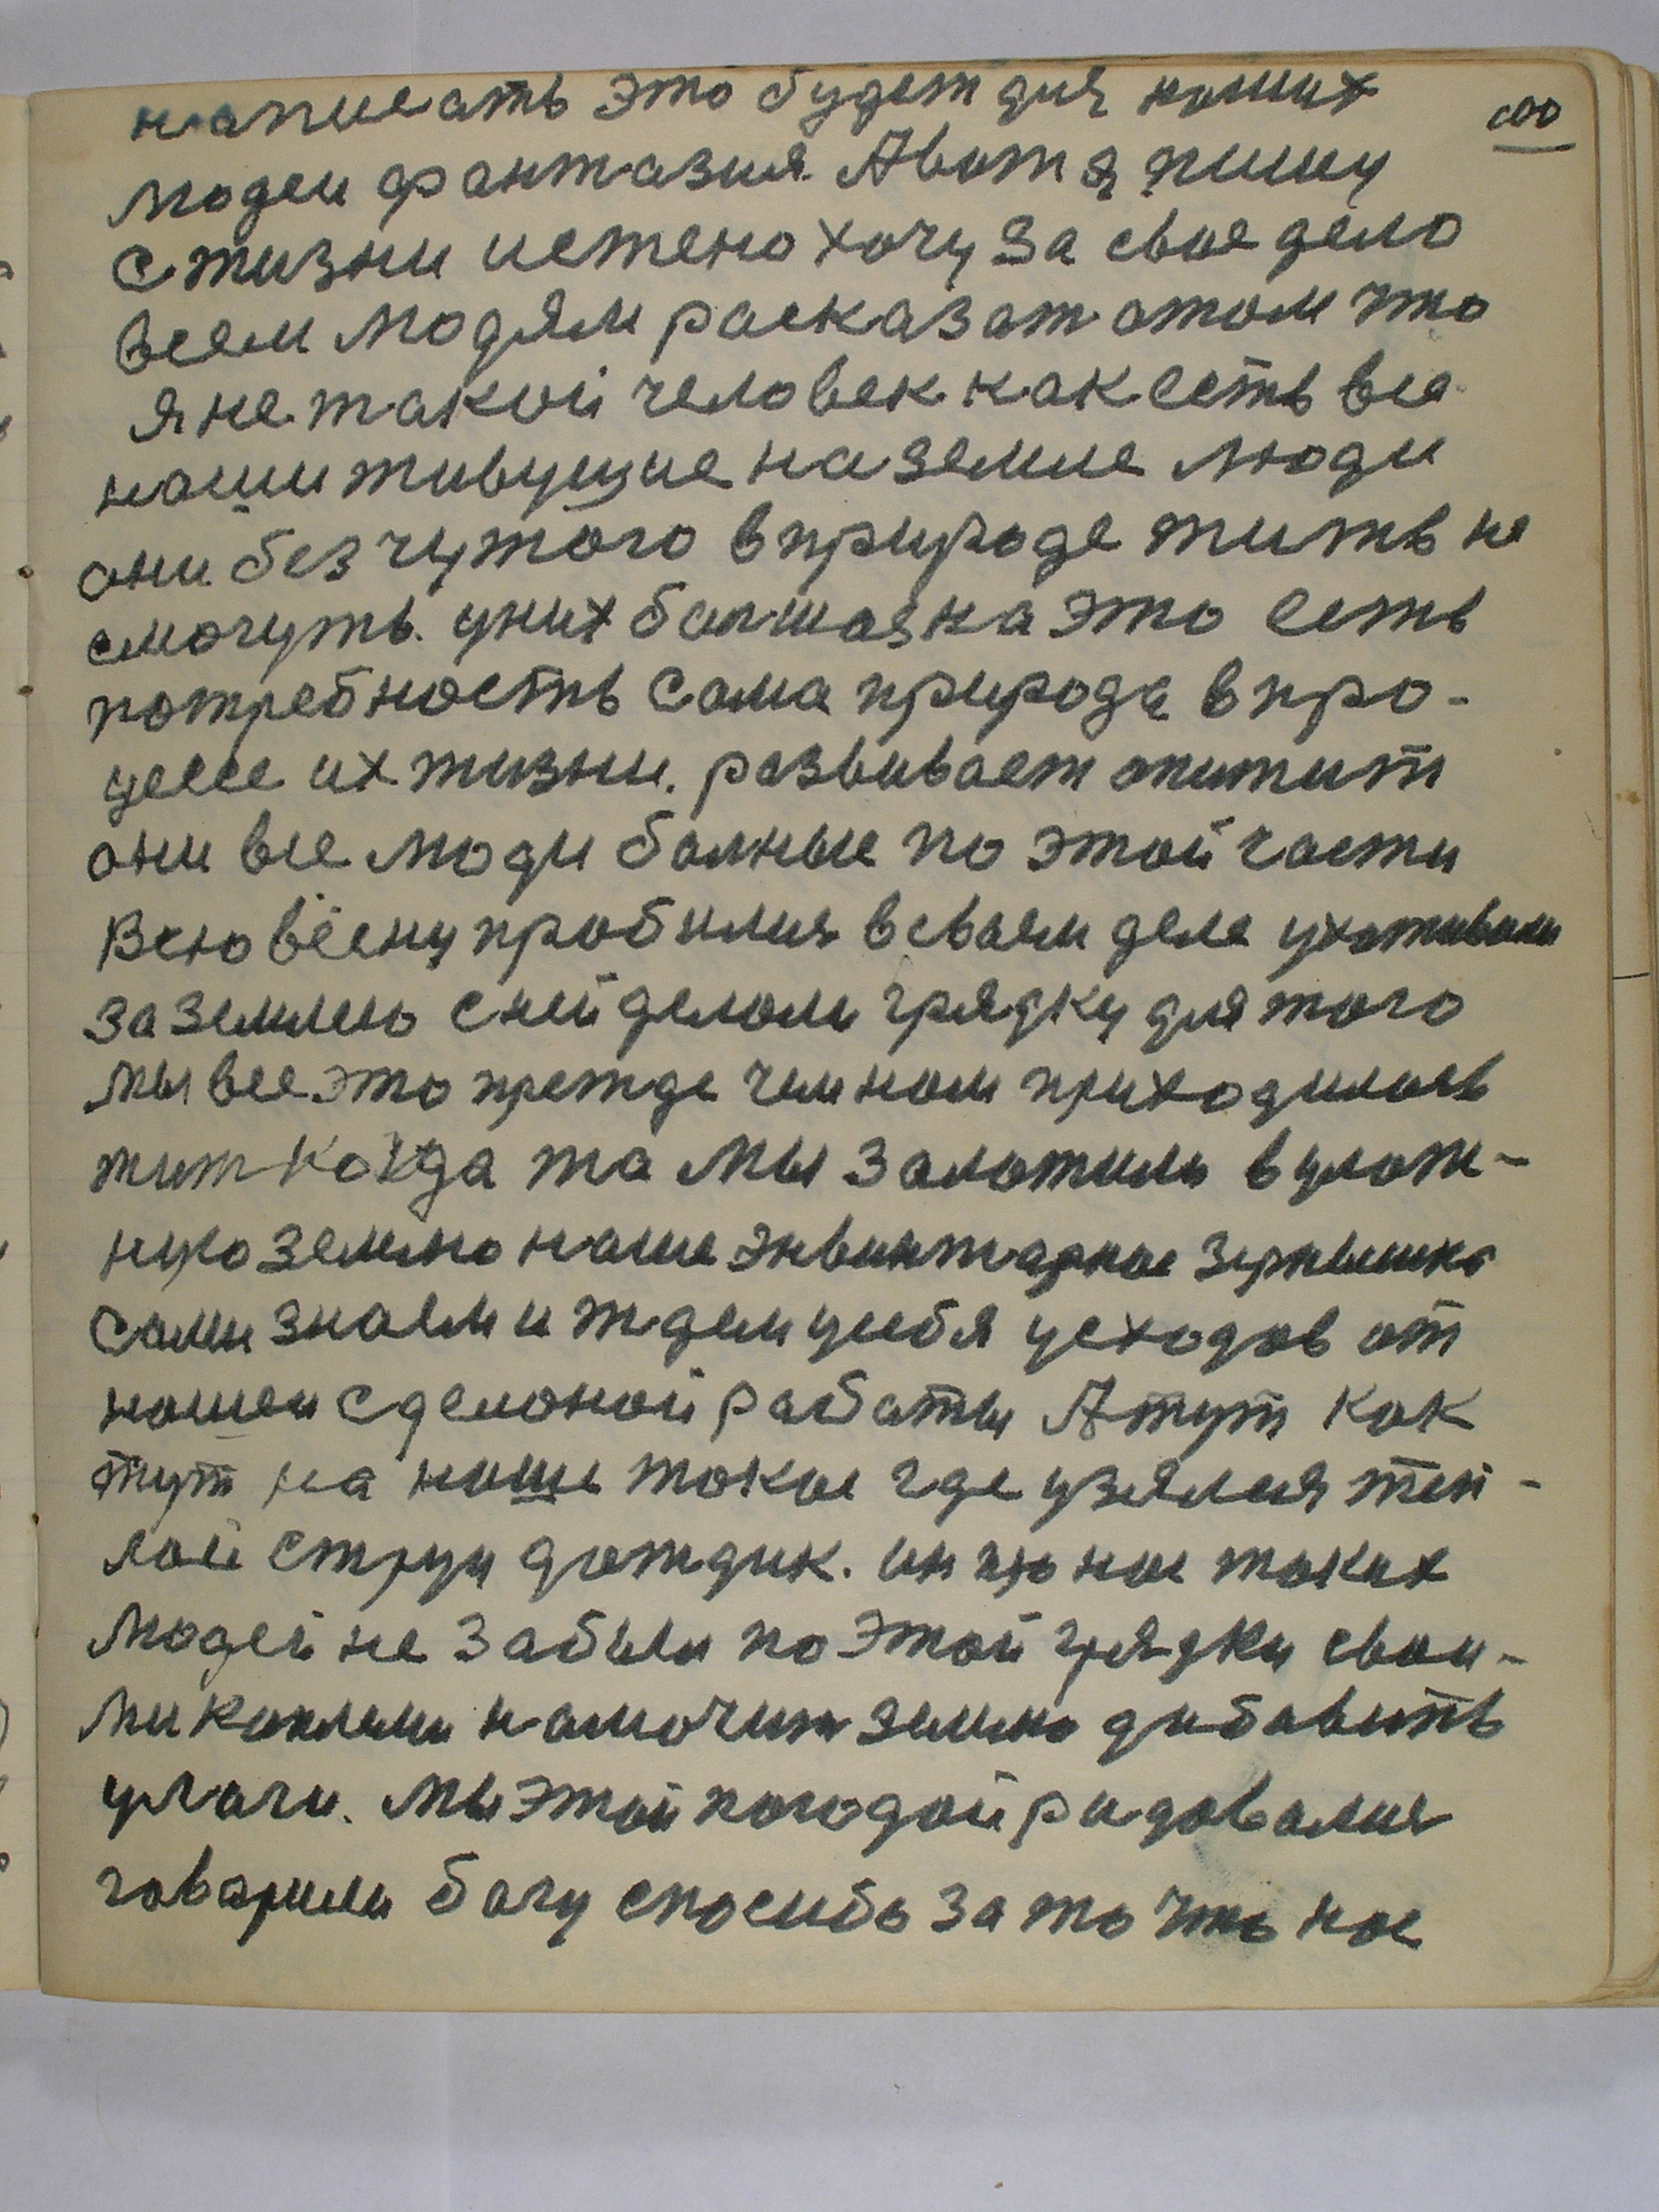 100
написать это будет для наших
людей фантазия. А вот я пишу
с жизни истено хочу за свое дело
всем людям расказат отом что
я не такой человек как есть все
наши живущие на земле люди
они без чужого в природе жить не
смогуть. у них болшая на это есть
потребность сама природа в про-
цессе их жизни. развивает
они все люди болные по этой части
Всю весну пробилися в своем деле ухаживали
за землею с ней делали грядку для того
мы все это прежде чем нам приходилось
жит когда та мы заложили в улаж-
ную землю наше энвинтарное зернышко
сами знаем и ждем у себя усходов от
нашей сделоной работы А тут как
тут на наше такое где узялися теп-
лай струи дождик. они про нас таких
людей не забыли по этой грядки свои-
ми каплями намочит землю дибавить
улаги. Мы этой погодой радовалися
говорили богу спосибо за то что нас